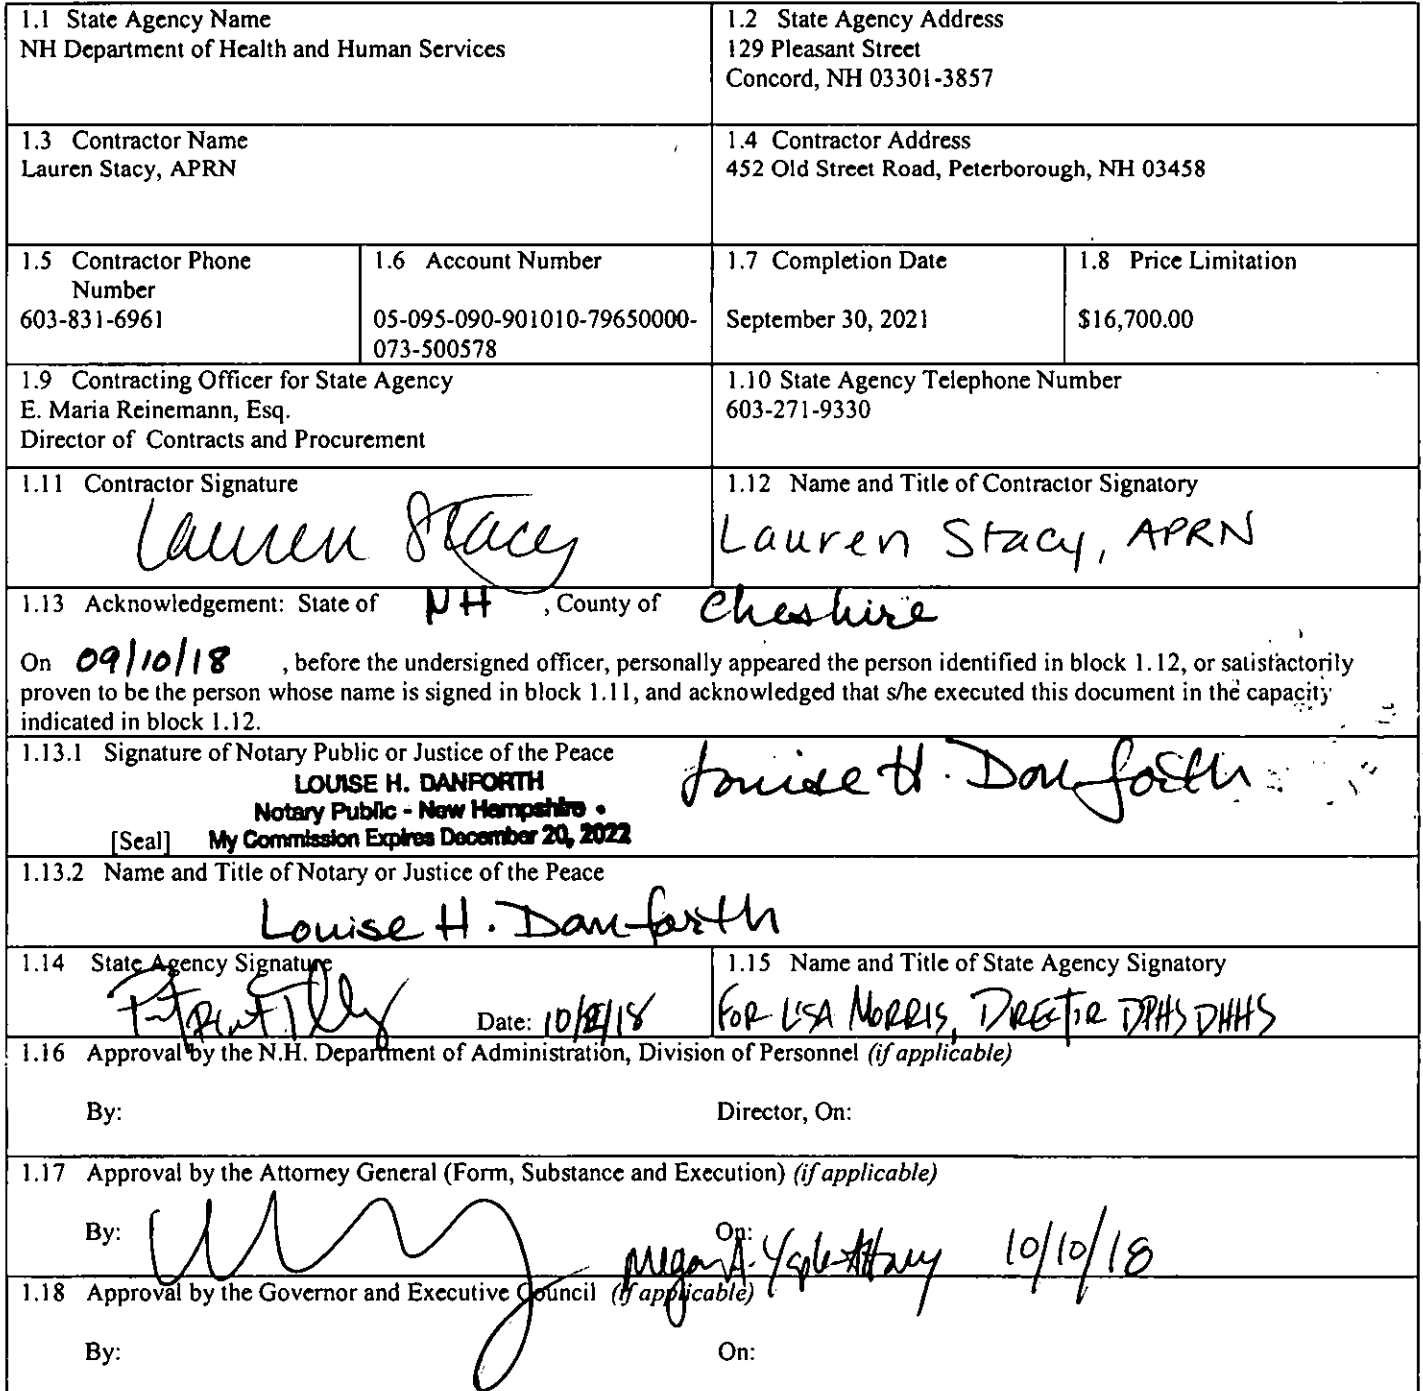 1.1 State Agency Name
NH Department of Health and Human Services
1.2 State Agency Address
129 Pleasant Street
Concord, NH 03301-3857
1.3 Contractor Name
Lauren Stacy, APRN
1.4 Contractor Address
452 Old Street Road, Peterborough, NH 03458
1.5 Contractor Phone
Number
603-831-6961
1.6 Account Number
05-095-090-901010-79650000-
073-500578
1.7 Completion Date
September 30, 2021
1.8 Price Limitation
$16,700.00
1.9 Contracting Officer for State Agency
E. Maria Reinemann, Esq.
Director of Contracts and Procurement
1.10 State Agency Telephone Number
603-271-9330
1.11 Contractor Signature
Lauren Stacy
1.12 Name and Title of Contractor Signatory
Lauren Stacy, APRN
1.13 Acknowledgement: State of NH , County of Cheshire
On 09/10/18 , before the undersigned officer, personally appeared the person identified in block 1.12, or satisfactorily
proven to be the person whose name is signed in block 1.11, and acknowledged that s/he executed this document in the capacity
indicated in block 1.12.
1.13.1 Signature of Notary Public or Justice of the Peace
LOUISE H. DANFORTH
Notary Public - New Hampshire
[Seal] My Commission Expires December 20, 2022
Louise H. Danforth
1.13.2 Name and Title of Notary or Justice of the Peace
Louise H. Danforth
1.14 State Agency Signature
Date: 10/ /18
1.15 Name and Title of State Agency Signatory
FOR LISA MORRIS, DIRECTOR DPHS DHHS
1.16 Approval by the N.H. Department of Administration, Division of Personnel (if applicable)
By:
Director, On:
1.17 Approval by the Attorney General (Form, Substance and Execution) (if applicable)
By:
On:
Megan A. 10/10/18
1.18 Approval by the Governor and Executive Council (if applicable)
By:
On: